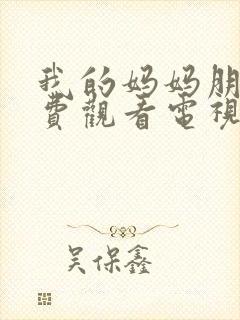 我的妈妈朋
费觀看電視
吴保鑫